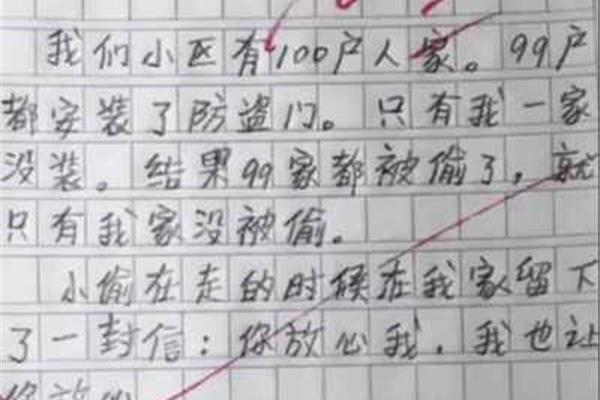 我们小区有100户人家。99户
都安装了防盗门。只有我一家
没装。结果99家都被偷了,就
只有我家没被偷。
小偷在走的时候在我家留下
了一封信:你放心我,我也让
你放心